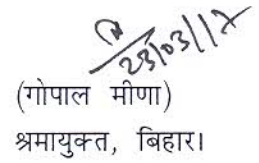 23/03/17
(गोपाल मीणा)
श्रमायुक्त, बिहार।